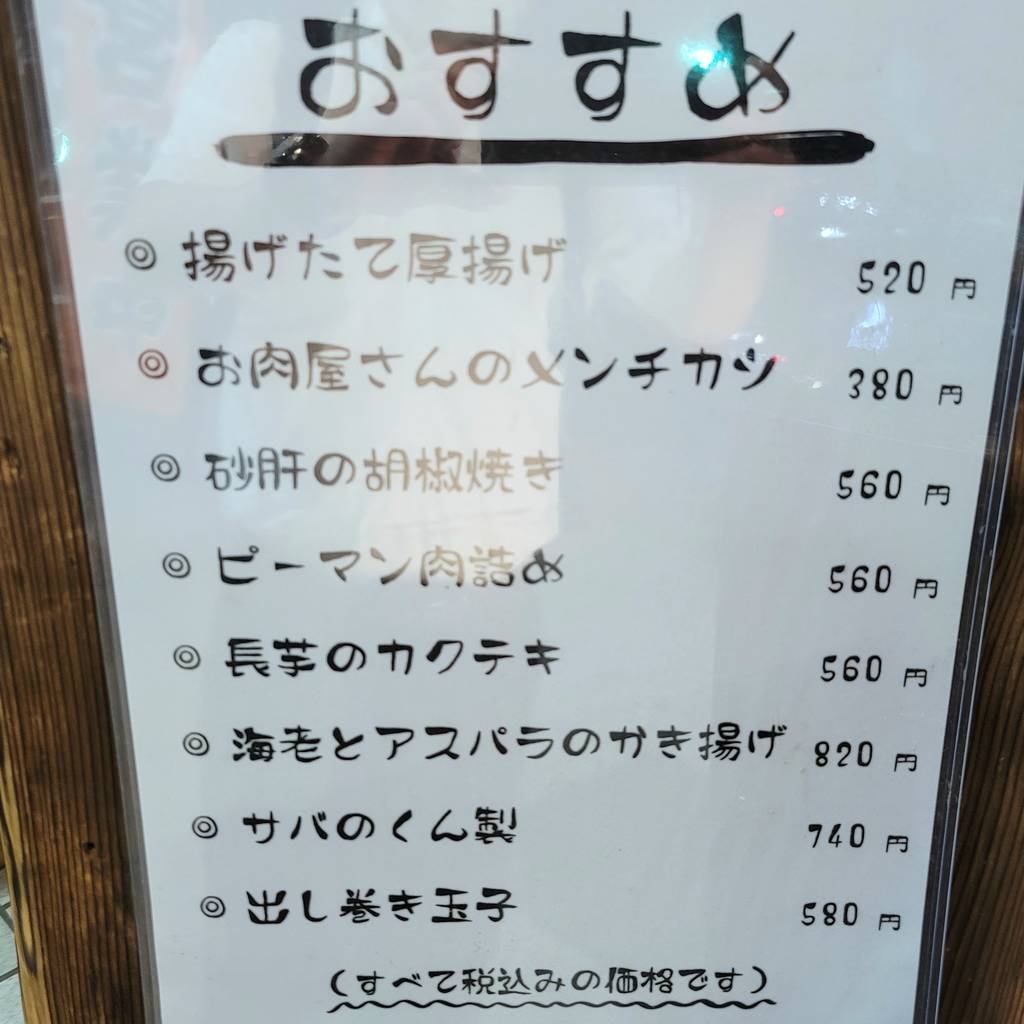 おすすめ
◎ 揚げたて厚揚げ 520 円
◎ お肉屋さんのメンチカツ 380 円
◎ 砂肝の胡椒焼き 560 円
◎ ピーマン肉詰め 560 円
◎ 長芋のカクテキ 560 円
◎ 海老とアスパラのかき揚げ 820 円
◎ サバのくん製 740 円
◎ 出し巻き玉子 580 円
(すべて税込みの価格です)